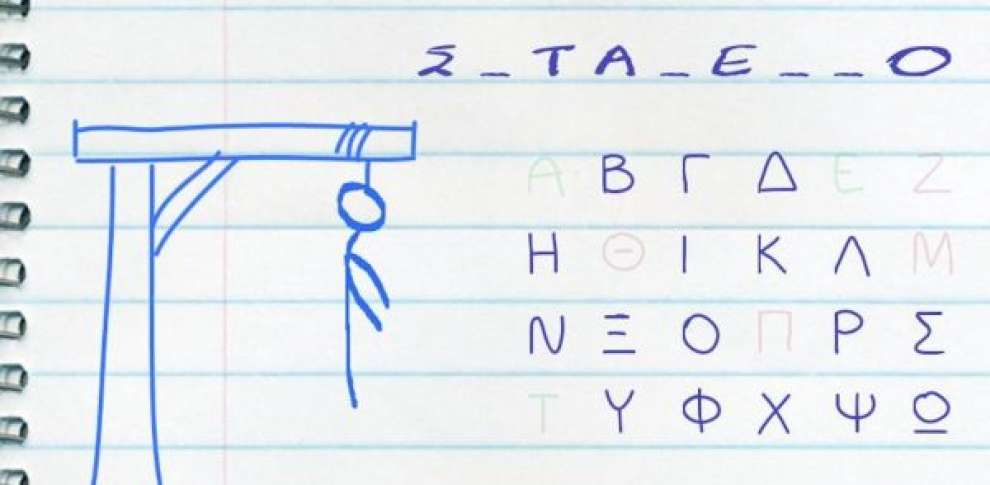 Σ _ Τ Α _ Ε _ _ Ο
Α Β Γ Δ Ε Ζ
Η Θ Ι Κ Λ Μ
Ν Ξ Ο Π Ρ Σ
Τ Υ Φ Χ Ψ Ω